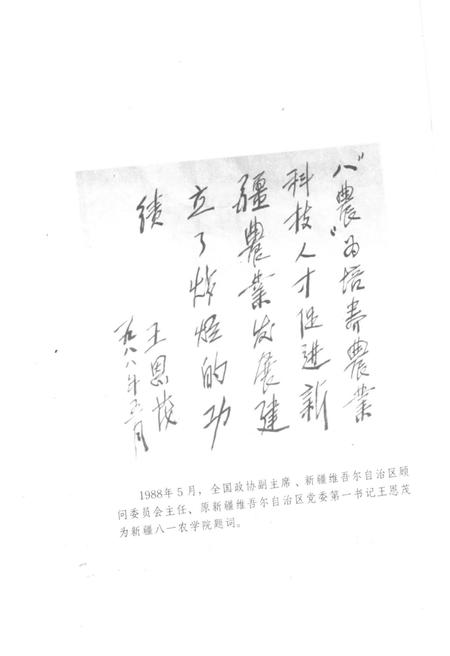 八“農”为培养農業
科技人才促进新
疆農業发展建
立了辉煌的功
績
王恩茂
一九八八年五月
1988年5月，全国政协副主席、新疆维吾尔自治区顾
问委员会主任、原新疆维吾尔自治区党委第一书记王恩茂
为新疆八一农学院题词。